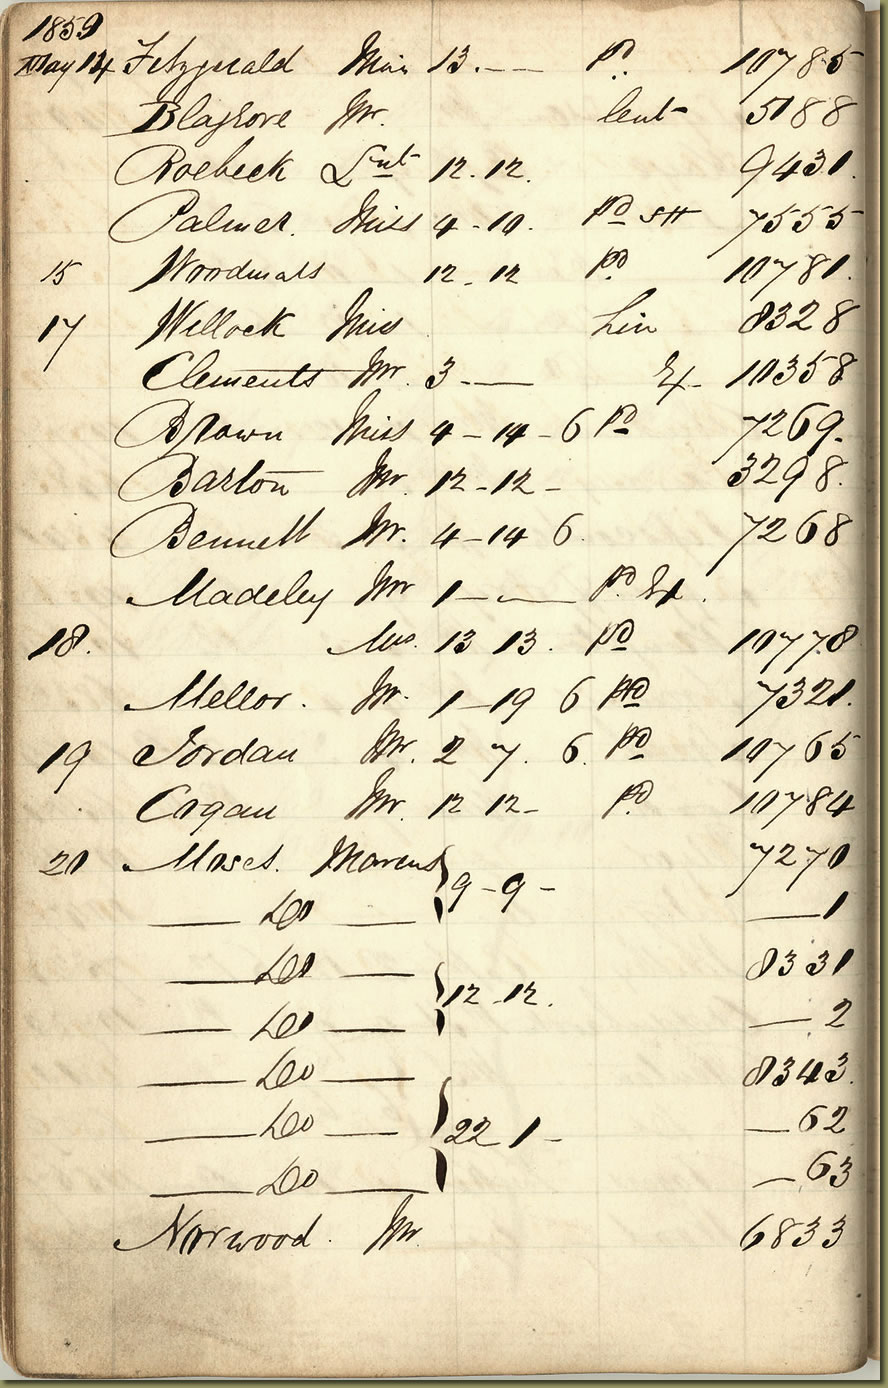 1859
May 14 Fitzgerald Miss 13. — — Pd. 10785
Blagrove Mr. lent 5188
Roebeck Lent 12. 12. 9431.
Palmer. Miss 4 - 10. Pd SH 7555
15 Woodmass 12 - 12 Pd 10781.
17 Willock Miss hin 8328
Clements Mr. 3 - — 10358
Brown Miss 4 - 14 - 6 Pd 7269.
Barton Mr. 12 - 12 - 3298.
Bennett Mr. 4 - 14 6. 7268
Madeley Mr 1 — — Pd
18. Mrs. 13 13. Pd 10778
Mellor. Mr. 1 - 19 6 Pd 7321.
19 Jordan Mr. 2 7. 6. Pd 10765
Cogan Mr. 12 12 - Pd. 10784
20 Moses. Marcus 9 - 9 - 7270
— Do — — 1
— Do — 12 - 12. 8331
— Do — — 2
— Do — 22 1 - 8343.
— Do — — 62
— Do — — 63
Norwood. Mr. 6833